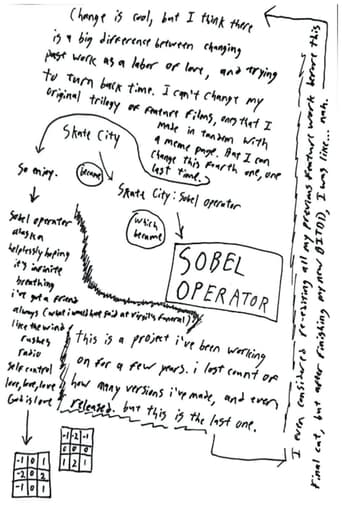 Change is cool, but I think there
is a big difference between changing
past work as a labor of love, and trying
to turn back time. I can't change my
original trilogy of feature films, ones that I
made in tandem with
a meme page. But I can
change this fourth one, one
last time.
Skate City
became
Skate City: Sobel operator
which
became
SOBEL
OPERATOR
So enjoy.
Sobel operator
alaskan
helplessly hoping
its infinite
breathing
i've got a friend
always (what i would have said at Virgil's funeral)
like the wind
rushes
radio
Self control
love, love, love
God is love
-1 0 1
-2 0 2
-1 0 1
-1 -2 -1
0 0 0
1 2 1
this is a project i've been working
on for a few years. i lost count of
how many versions i've made, and even
released. but this is the last one.
I even considered re-releasing all my previous feature work before this
final cut, but after finishing my new
I was like... nah.